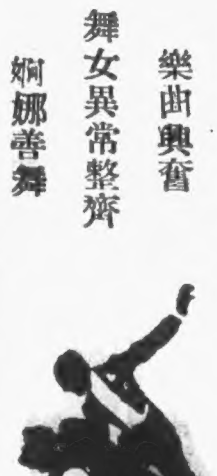 樂曲興奮
舞女異常整齊
婀娜善舞